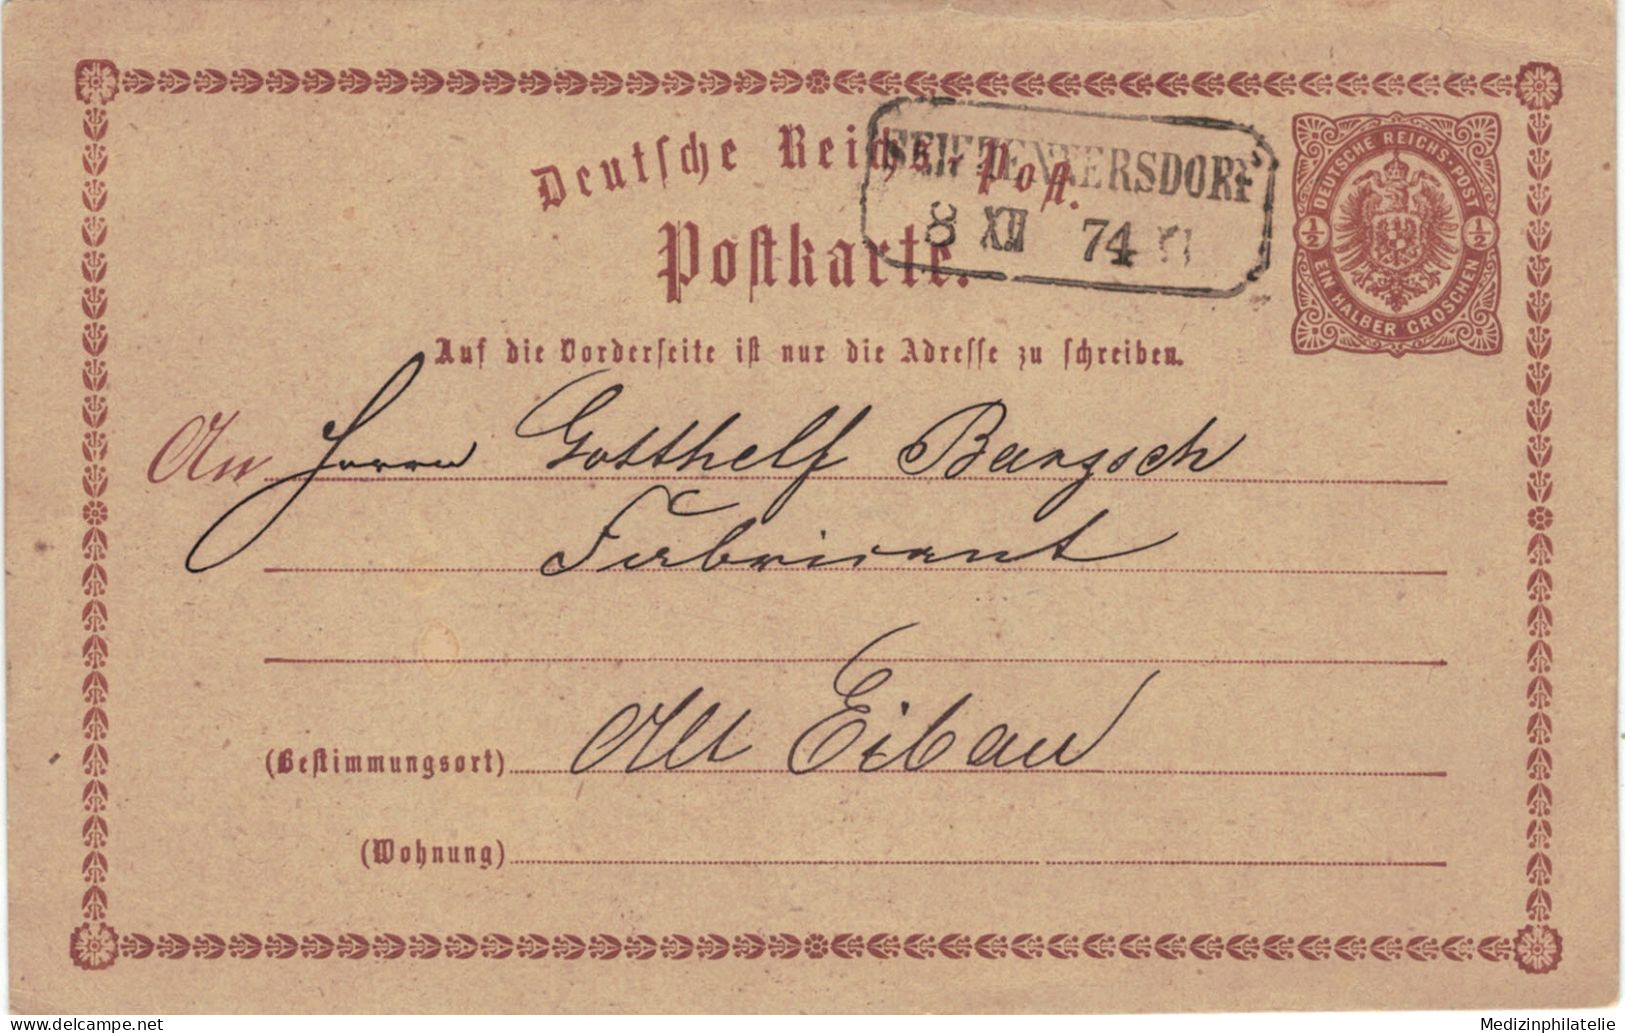 Deutsche Reichs-Post.
SEIFHENNERSDORF
8 XII 74
DEUTSCHE REICHS-POST
½ ½
EIN HALBER GROSCHEN
Postkarte.
Auf die Vorderseite ist nur die Adresse zu schreiben.
An Herrn Gotthelf
Fabricant
(Bestimmungsort) Alt Eibau
(Wohnung)
© MedizinPhilatelie